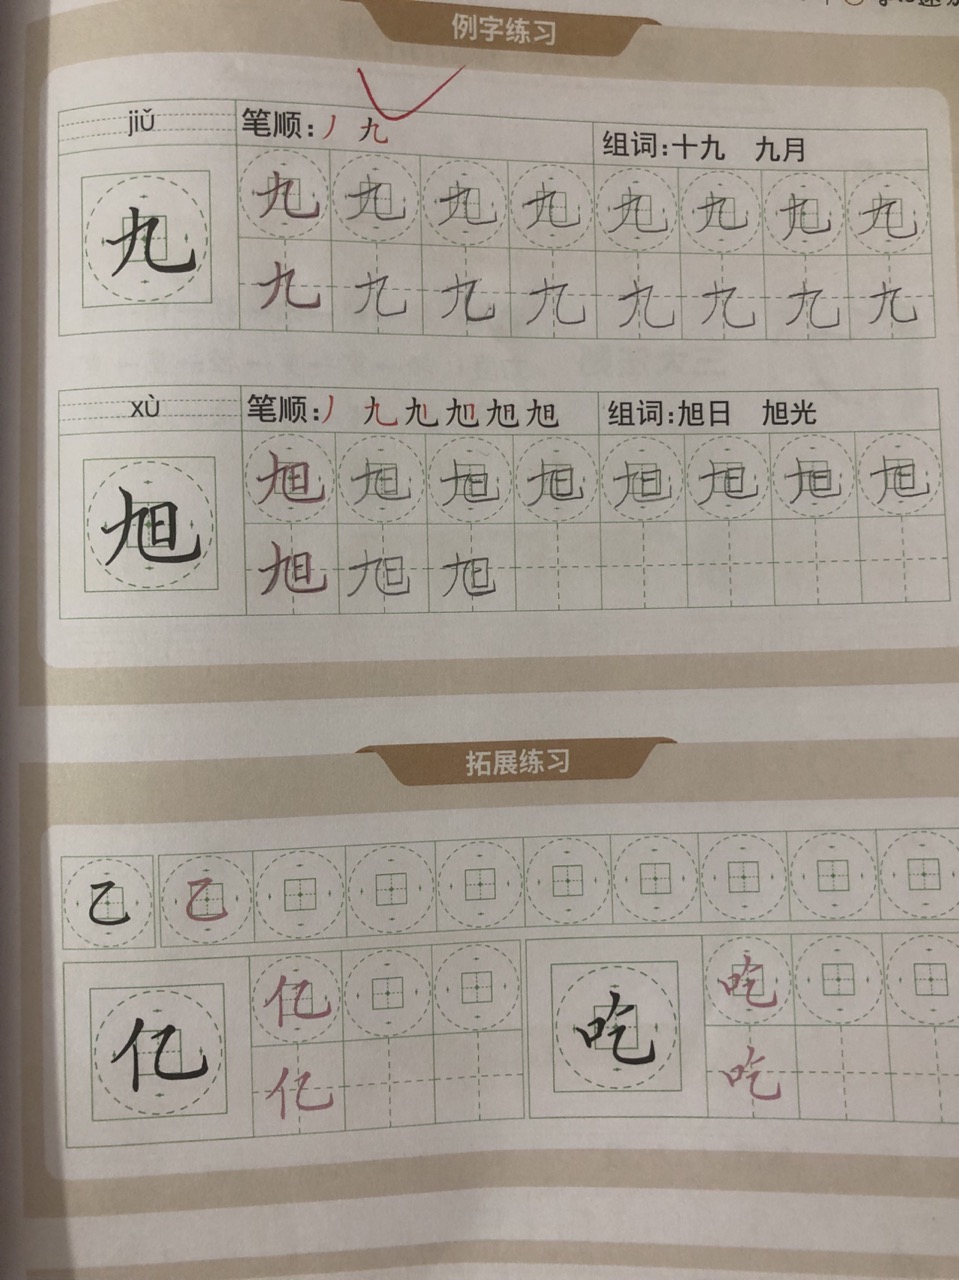 例字练习
jiǔ 笔顺:丿 九 组词:十九 九月
九 九 九 九 九 九 九 九 九
九 九 九 九 九 九 九 九
xù 笔顺:丿 九 九 旭 旭 旭 组词:旭日 旭光
旭 旭 旭 旭 旭 旭 旭 旭 旭
旭 旭 旭
拓展练习
乙 乙
亿 亿 吃 吃
亿 吃